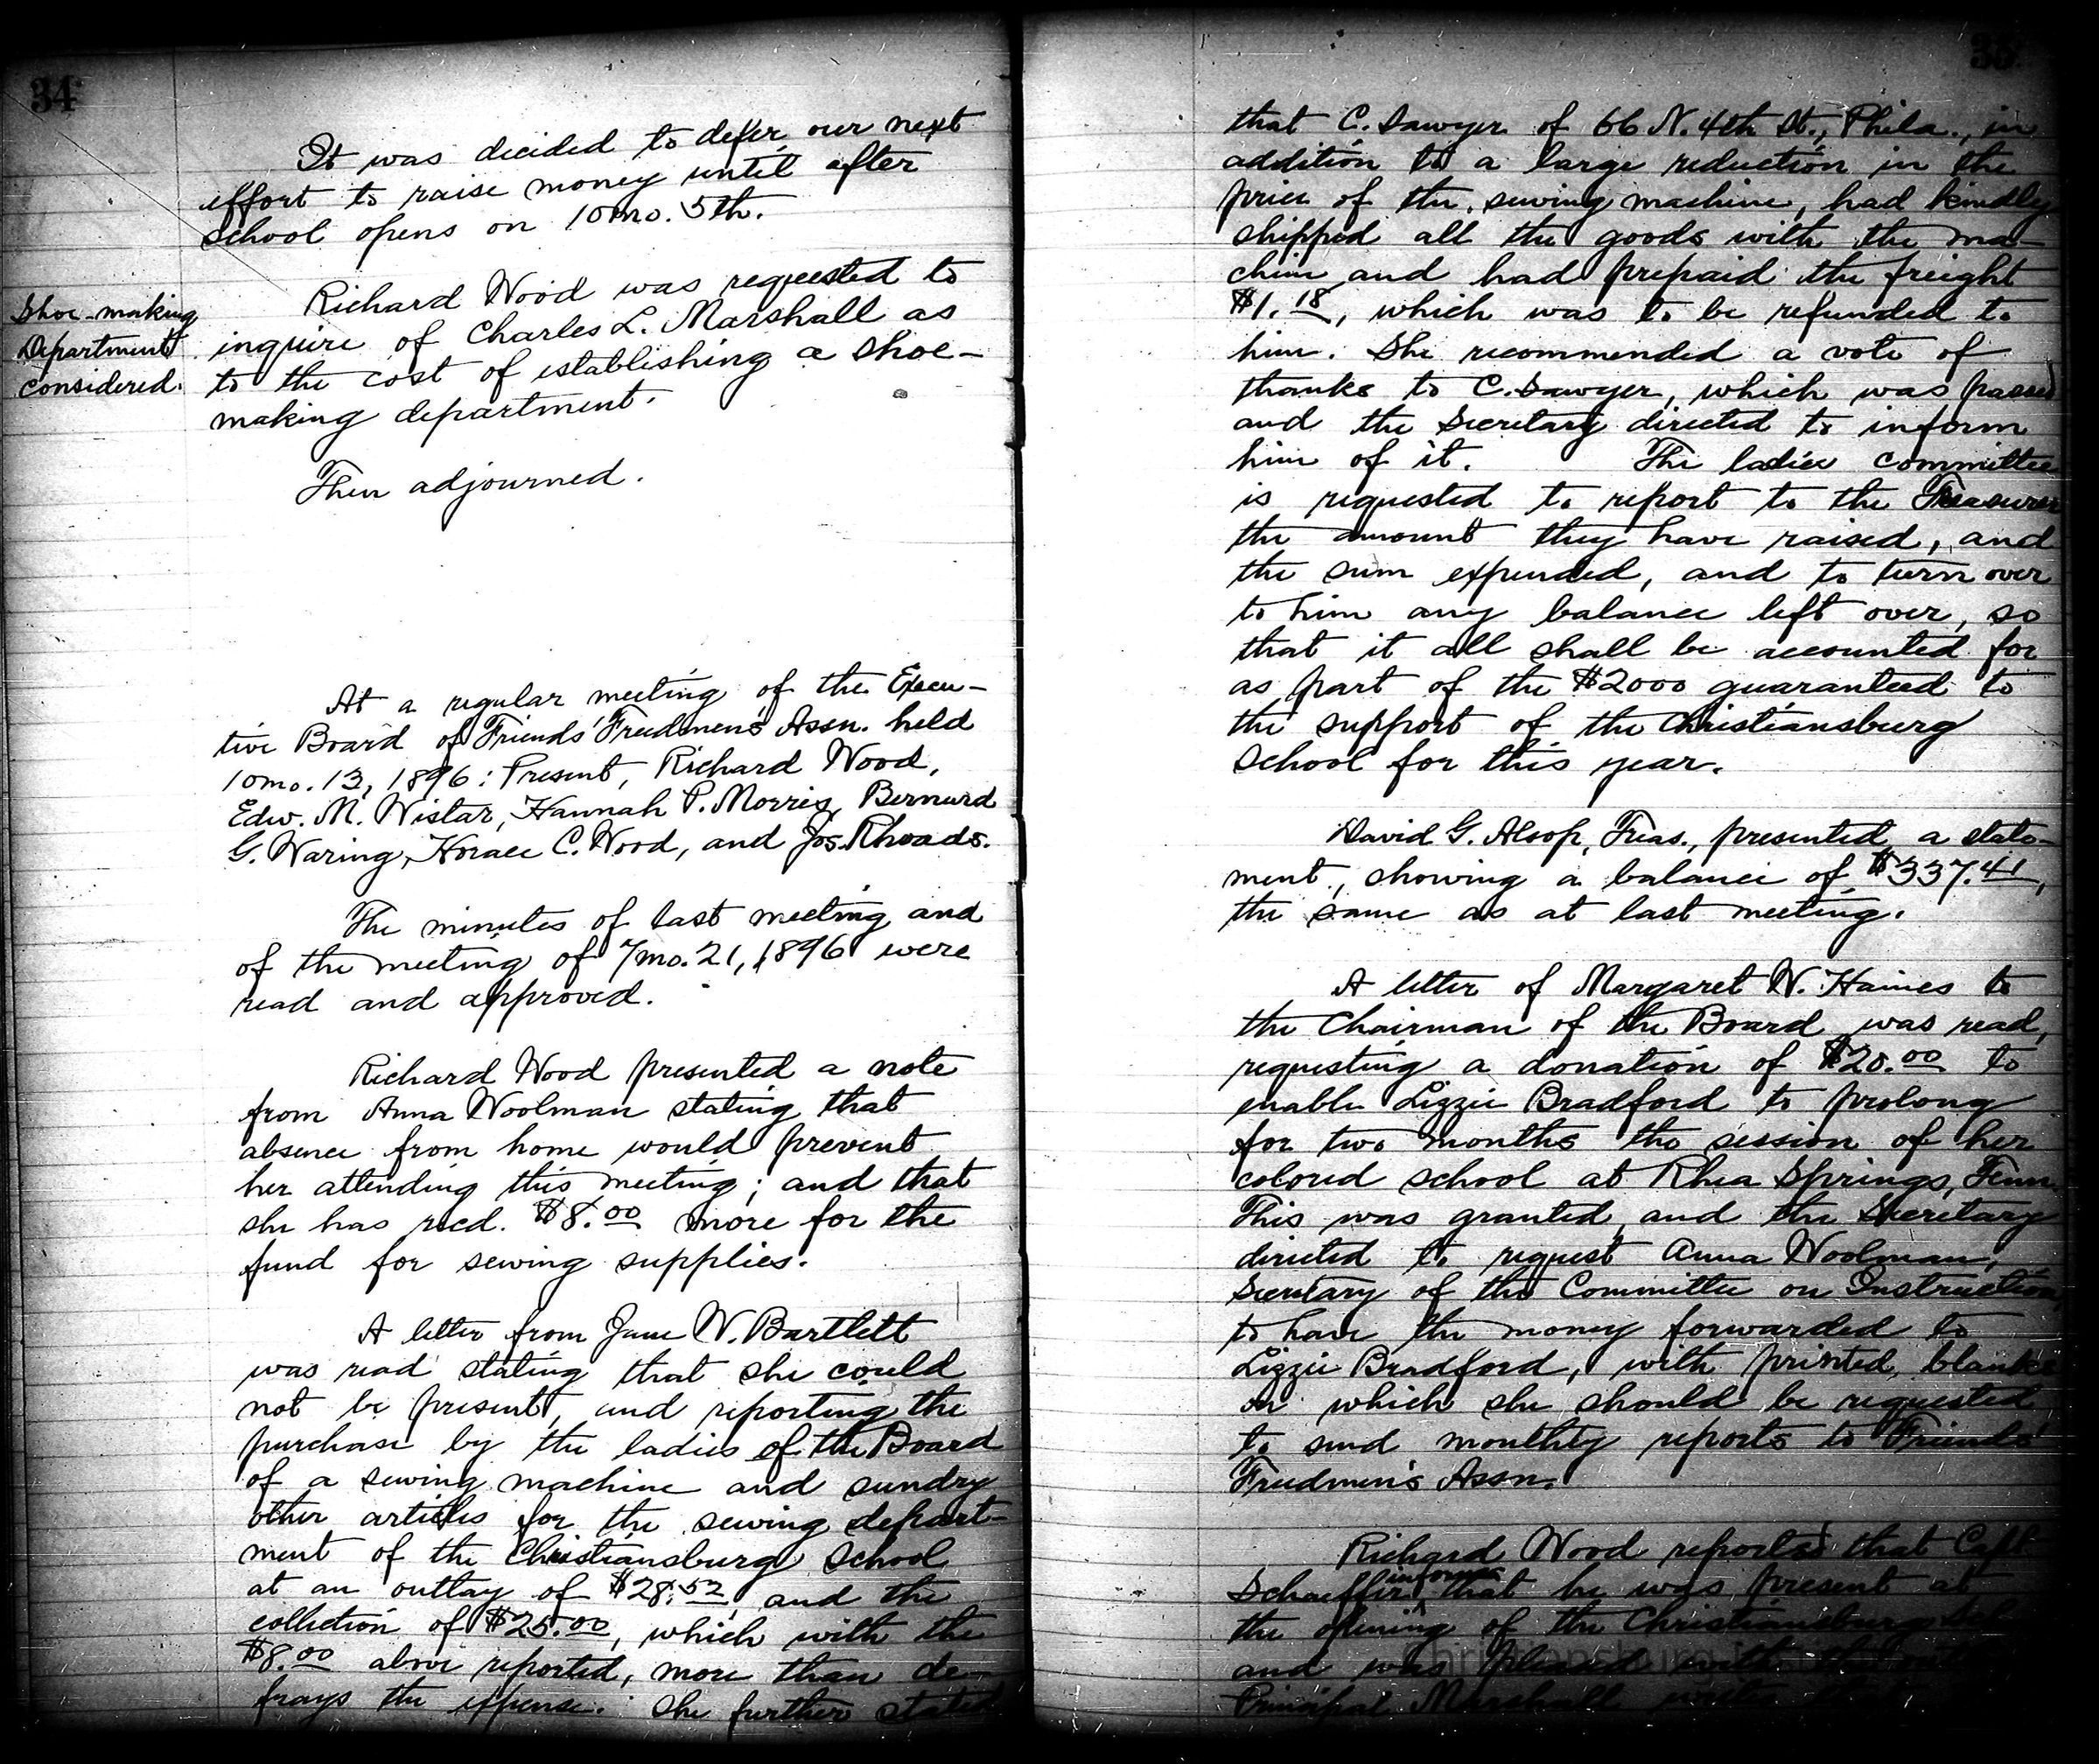 34
It was decided to defer our next
effort to raise money until after
school opens on 10mo. 5th.
Shoe-making
Department
considered.
Richard Wood was requested to
inquire of Charles L. Marshall as
to the cost of establishing a shoe-
making department.
Then adjourned.
At a regular meeting of the Execu-
tive Board of Friends' Freedmen's Assn. held
10mo. 13, 1896: Present, Richard Wood,
Edw. M. Wistar, Hannah P. Morris, Bernard
G. Waring, Horace C. Wood, and Jos. Rhoads.
The minutes of last meeting and
of the meeting of 7mo. 21, 1896 were
read and approved.
Richard Wood presented a note
from Anna Woolman stating that
absence from home would prevent
her attending this meeting; and that
she has recd. $8.00 more for the
fund for sewing supplies.
A letter from Jane W. Bartlett
was read stating that she could
not be present, and reporting the
purchase by the ladies of the Board
of a sewing machine and sundry
other articles for the sewing depart-
ment of the Christiansburg School
at an outlay of $28.52 and the
collection of $25.00, which with the
$8.00 above reported, more than de-
frays the expense. She further stated
35
that C. Sawyer of 66 N. 4th St., Phila., in
addition to a large reduction in the
price of the sewing machine, had kindly
shipped all the goods with the ma-
chine and had prepaid the freight
$1.18, which was to be refunded to
him. She recommended a vote of
thanks to C. Sawyer, which was passed
and the Secretary directed to inform
him of it. The ladies committee
is requested to report to the Treasurer
the amount they have raised, and
the sum expended, and to turn over
to him any balance left over, so
that it all shall be accounted for
as part of the $2000 guaranteed to
the support of the Christiansburg
School for this year.
David G. Alsop, Treas., presented a state-
ment, showing a balance of $337.41,
the same as at last meeting.
A letter of Margaret W. Haines to
the Chairman of the Board was read,
requesting a donation of $20.00 to
enable Lizzie Bradford to prolong
for two months the session of her
colored school at Rhea Springs, Tenn.
This was granted, and the Secretary
directed to request Anna Woolman,
Secretary of the Committee on Instruction,
to have the money forwarded to
Lizzie Bradford, with printed blanks
on which she should be requested
to send monthly reports to Friends'
Freedmen's Assn.
Richard Wood reported that Capt.
Schaeffer informs that he was present at
the opening of the Christiansburg
and was pleased with the
Principal Marshall writes that